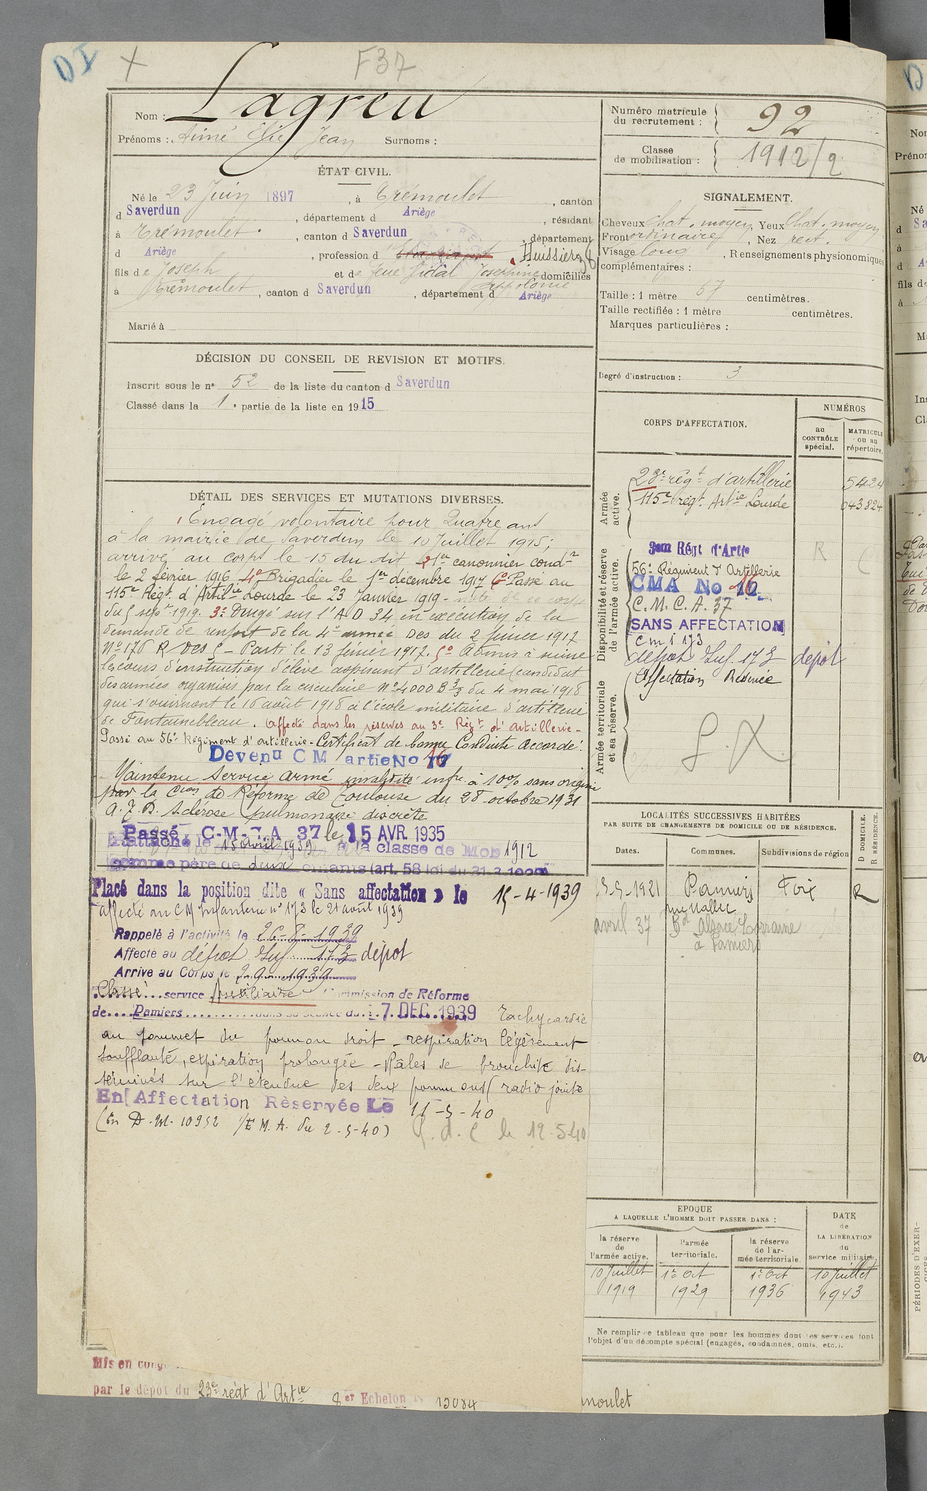 DI
F37
Nom : Lagreu
Prénoms : Aimé Elie Jean Surnoms :
Numéro matricule du recrutement : 92
Classe de mobilisation : 1912/2
ÉTAT CIVIL.
Né le 23 Juin 1897, à Trémoulet, canton
d Saverdun, département d Ariège, résidant
à Trémoulet, canton d Saverdun, département
d Ariège, profession d Huissier
fils de Joseph et de feue Vidal Joséphine Appolonie domiciliés
à Trémoulet, canton d Saverdun, département d Ariège
Marié à
SIGNALEMENT.
Cheveux chat. moyen Yeux Chat. moyen
Front ordinaire, Nez rect.
Visage long, Renseignements physionomiques
complémentaires :
Taille : 1 mètre 67 centimètres.
Taille rectifiée : 1 mètre centimètres.
Marques particulières :
Degré d'instruction : 3
DÉCISION DU CONSEIL DE REVISION ET MOTIFS.
Inscrit sous le n° 52 de la liste du canton d Saverdun
Classé dans la 1e partie de la liste en 1915
DÉTAIL DES SERVICES ET MUTATIONS DIVERSES.
Engagé volontaire pour Quatre ans
à la mairie de Saverdun le 10 Juillet 1915;
arrivé au corps le 15 du dit 2° 1er canonnier condr
le 2 février 1916 4° Brigadier le 1er décembre 1917 6° Passé au
115e Régt d'Artilie Lourde le 23 Janvier 1919
du 5 septbre 1919. 3° Dirigé sur l'A D 34 en exécution de la
demande de renfort de la 4e armée DES du 2 février 1917
N° 170 R DES Parti le 13 février 1917. 5° Admis à suivre
les cours d'instruction d'élève aspirant d'artillerie (candidat
des armées organisés par la circulaire N° 4000 B 3/3 du 4 mai 1918
qui s'ouvriront le 10 août 1918 à l'école militaire d'artillerie
de Fontainebleau. Affecté dans les réserves au 3e Régt d'Artillerie
Passé au 56e Régiment d'Artillerie - Certificat de bonne Conduite accordé.
Devenu CM artie No 16
Maintenu Service armé invalidité infre à 10% sans origine
par la Cion de Réforme de Toulouse du 28 octobre 1931
Sclérose pulmonaire discrète
Passé C.M.C.A 37 le 15 AVR. 1935
Rattaché le 15 avril 1939 à la classe de Mob 1912
comme père de deux enfants (art. 58 loi du 31.3.1928)
Placé dans la position dite « Sans affectation » le 15-4-1939
affecté au CM Infanterie n° 173 le 21 avril 1939
Rappelé à l'activité le 26-8-1939
Affecté au dépôt Inf 173 dépôt
Arrivé au Corps le 2.9.1939
Classé service Auxiliaire Commission de Réforme
de Pamiers dans sa séance du 7 DEC. 1939 Tachycardie
au sommet du poumon droit - respiration légèrement
soufflante, expiration prolongée - Râles de bronchite dis-
séminés sur l'étendue des deux poumons (radio jointe
En Affectation Réservée Le 11-5-40
(En D.M. 10952 /E.M.A. du 2-5-40) le 12-5-40
Mis en congé
par le dépôt du 23e régt d'Artie 8er Echelon N° 15084
moulet
CORPS D'AFFECTATION.
NUMÉROS
au CONTRÔLE spécial.
MATRICULE ou au répertoire.
Armée active.
23e régt d'artillerie 5424
115e régt Artie Lourde 043824
Disponibilité et réserve de l'armée active.
3me Régt d'Artie
56e Régiment d'Artillerie
CMA No 16
C.M.C.A. 37
SANS AFFECTATION
C m I 173
dépôt Inf 173 dépôt
Affectation Réservée
R
Armée territoriale et sa réserve.
LOCALITÉS SUCCESSIVES HABITÉES
PAR SUITE DE CHANGEMENTS DE DOMICILE OU DE RÉSIDENCE.
Dates. Communes. Subdivisions de région
D DOMICILE. R RÉSIDENCE.
1921 Pamiers Foix R
avril 37 Bd Alsace Lorraine
à Pamiers
EPOQUE
A LAQUELLE L'HOMME DOIT PASSER DANS :
la réserve de l'armée active.
l'armée territoriale.
la réserve de l'armée territoriale.
DATE de LA LIBÉRATION du service militaire.
10 Juillet 1919
1er Oct 1929
1er Oct 1936
10 Juillet 1943
Ne remplir ce tableau que pour les hommes dont les services font
l'objet d'un décompte spécial (engagés, condamnés, omis, etc.).